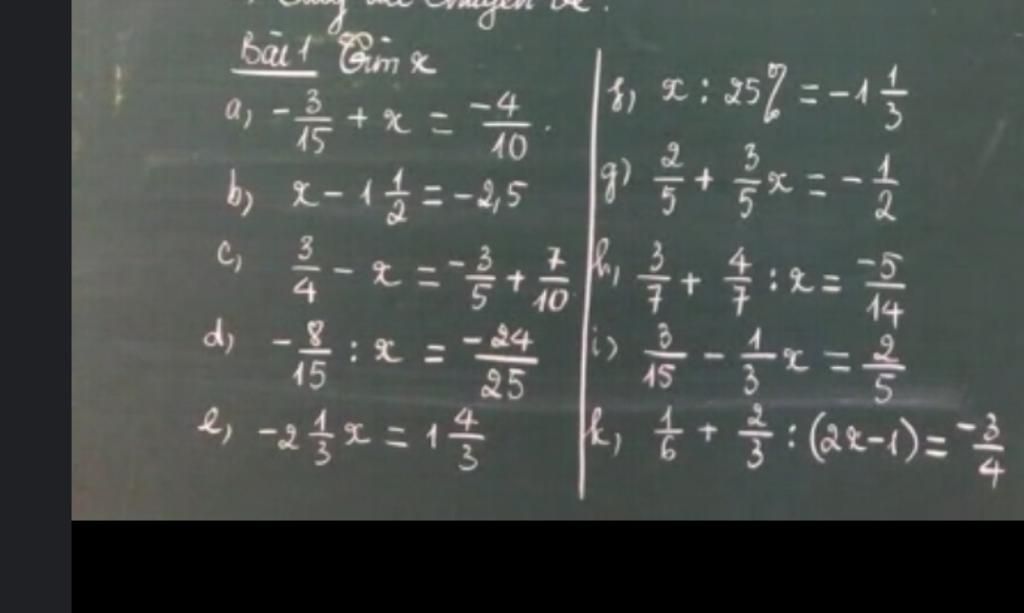 Bài 1 Tìm x
a, -3/15 + x = -4/10.
b) x - 1 1/2 = -2,5
c, 3/4 - x = -3/5 + 7/10
d, -8/15 : x = -24/25
e, -2 1/3 x = 1 4/3
f, x : 25% = -1 1/3
g) 2/5 + 3/5 x = -1/2
h, 3/7 + 4/7 : x = -5/14
i) 3/15 - 1/3 x = 2/5
k, 1/6 + 2/3 : (2x-1) = -3/4